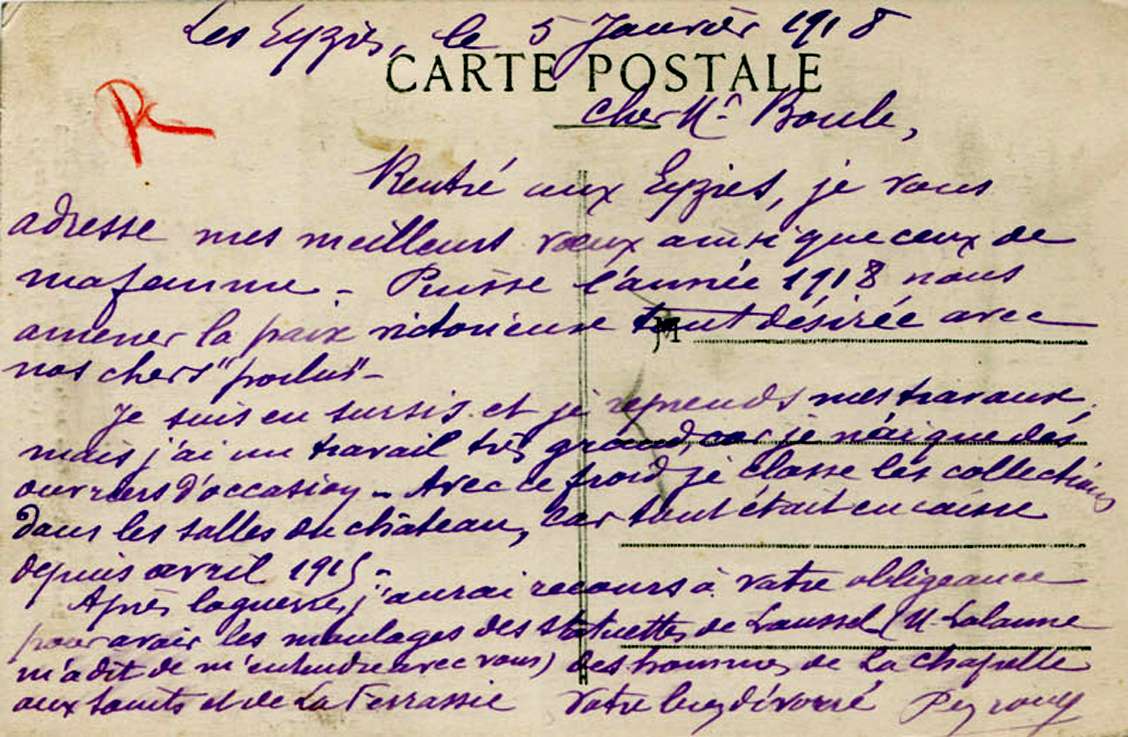 Les Eyzies, le 5 Janvier 1918
CARTE POSTALE
R
cher Mr Boule,
Rentré aux Eyzies, je vous
adresse mes meilleurs vœux ainsi que ceux de
ma femme. - Puisse l'année 1918 nous
amener la paix victorieuse tant désirée avec
M
nos chers "poilus" -
Je suis en sursis et je reprends mes travaux,
mais j'ai un travail très grand, car je n'ai que des
ouvriers d'occasion - Avec ce froid je classe les collections
dans les salles du château, car tout était en caisse
depuis avril 1915 -
Après la guerre, j'aurai recours à votre obligeance
pour avoir les moulages des statuettes de Laussel (M Lalanne
m'a dit de m'entendre avec vous) des hommes de La Chapelle
aux Saints et de La Ferrassie Votre bien dévoué Peyrony